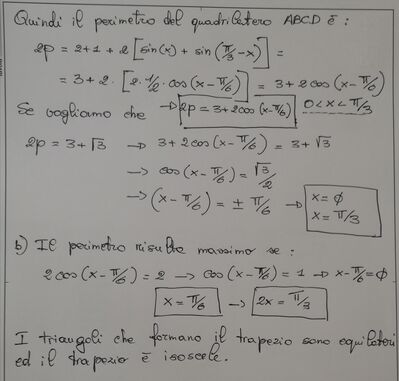 Quindi il perimetro del quadrilatero ABCD è :
2p = 2+1 + 2 [sin(x) + sin(π/3 - x)] =
= 3 + 2 · [2 · 1/2 · cos(x - π/6)] = 3 + 2 cos(x - π/6)
Se vogliamo che → 2p = 3+2cos(x-π/6) 0<x<π/3
2p = 3+√3 → 3 + 2cos(x - π/6) = 3+√3
→ cos(x - π/6) = √3/2
→ (x - π/6) = ± π/6 → x = ϕ
x = π/3
b) Il perimetro risulta massimo se :
2cos(x - π/6) = 2 → cos(x - π/6) = 1 → x - π/6 = ϕ
x = π/6 → 2x = π/3
I triangoli che formano il trapezio sono equilateri
ed il trapezio è isoscele.